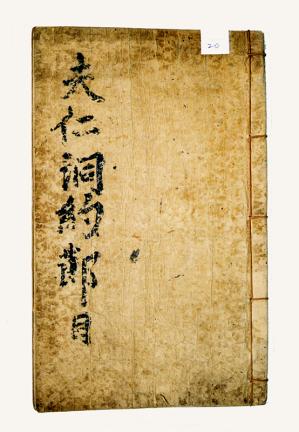 20
夫仁洞約鄭目